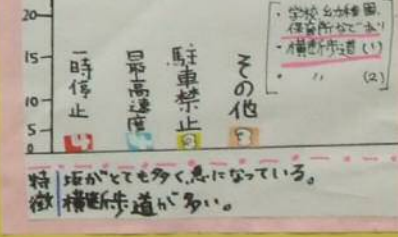 20
15
10
5
0
一時停止
4
最高速度
4
駐車禁止
2
その他
3
・学校、幼稚園、
保育所などあり
・横断歩道(1)
・ 〃 (2)
特徴
坂がとても多く、急になっている。
横断歩道が多い。